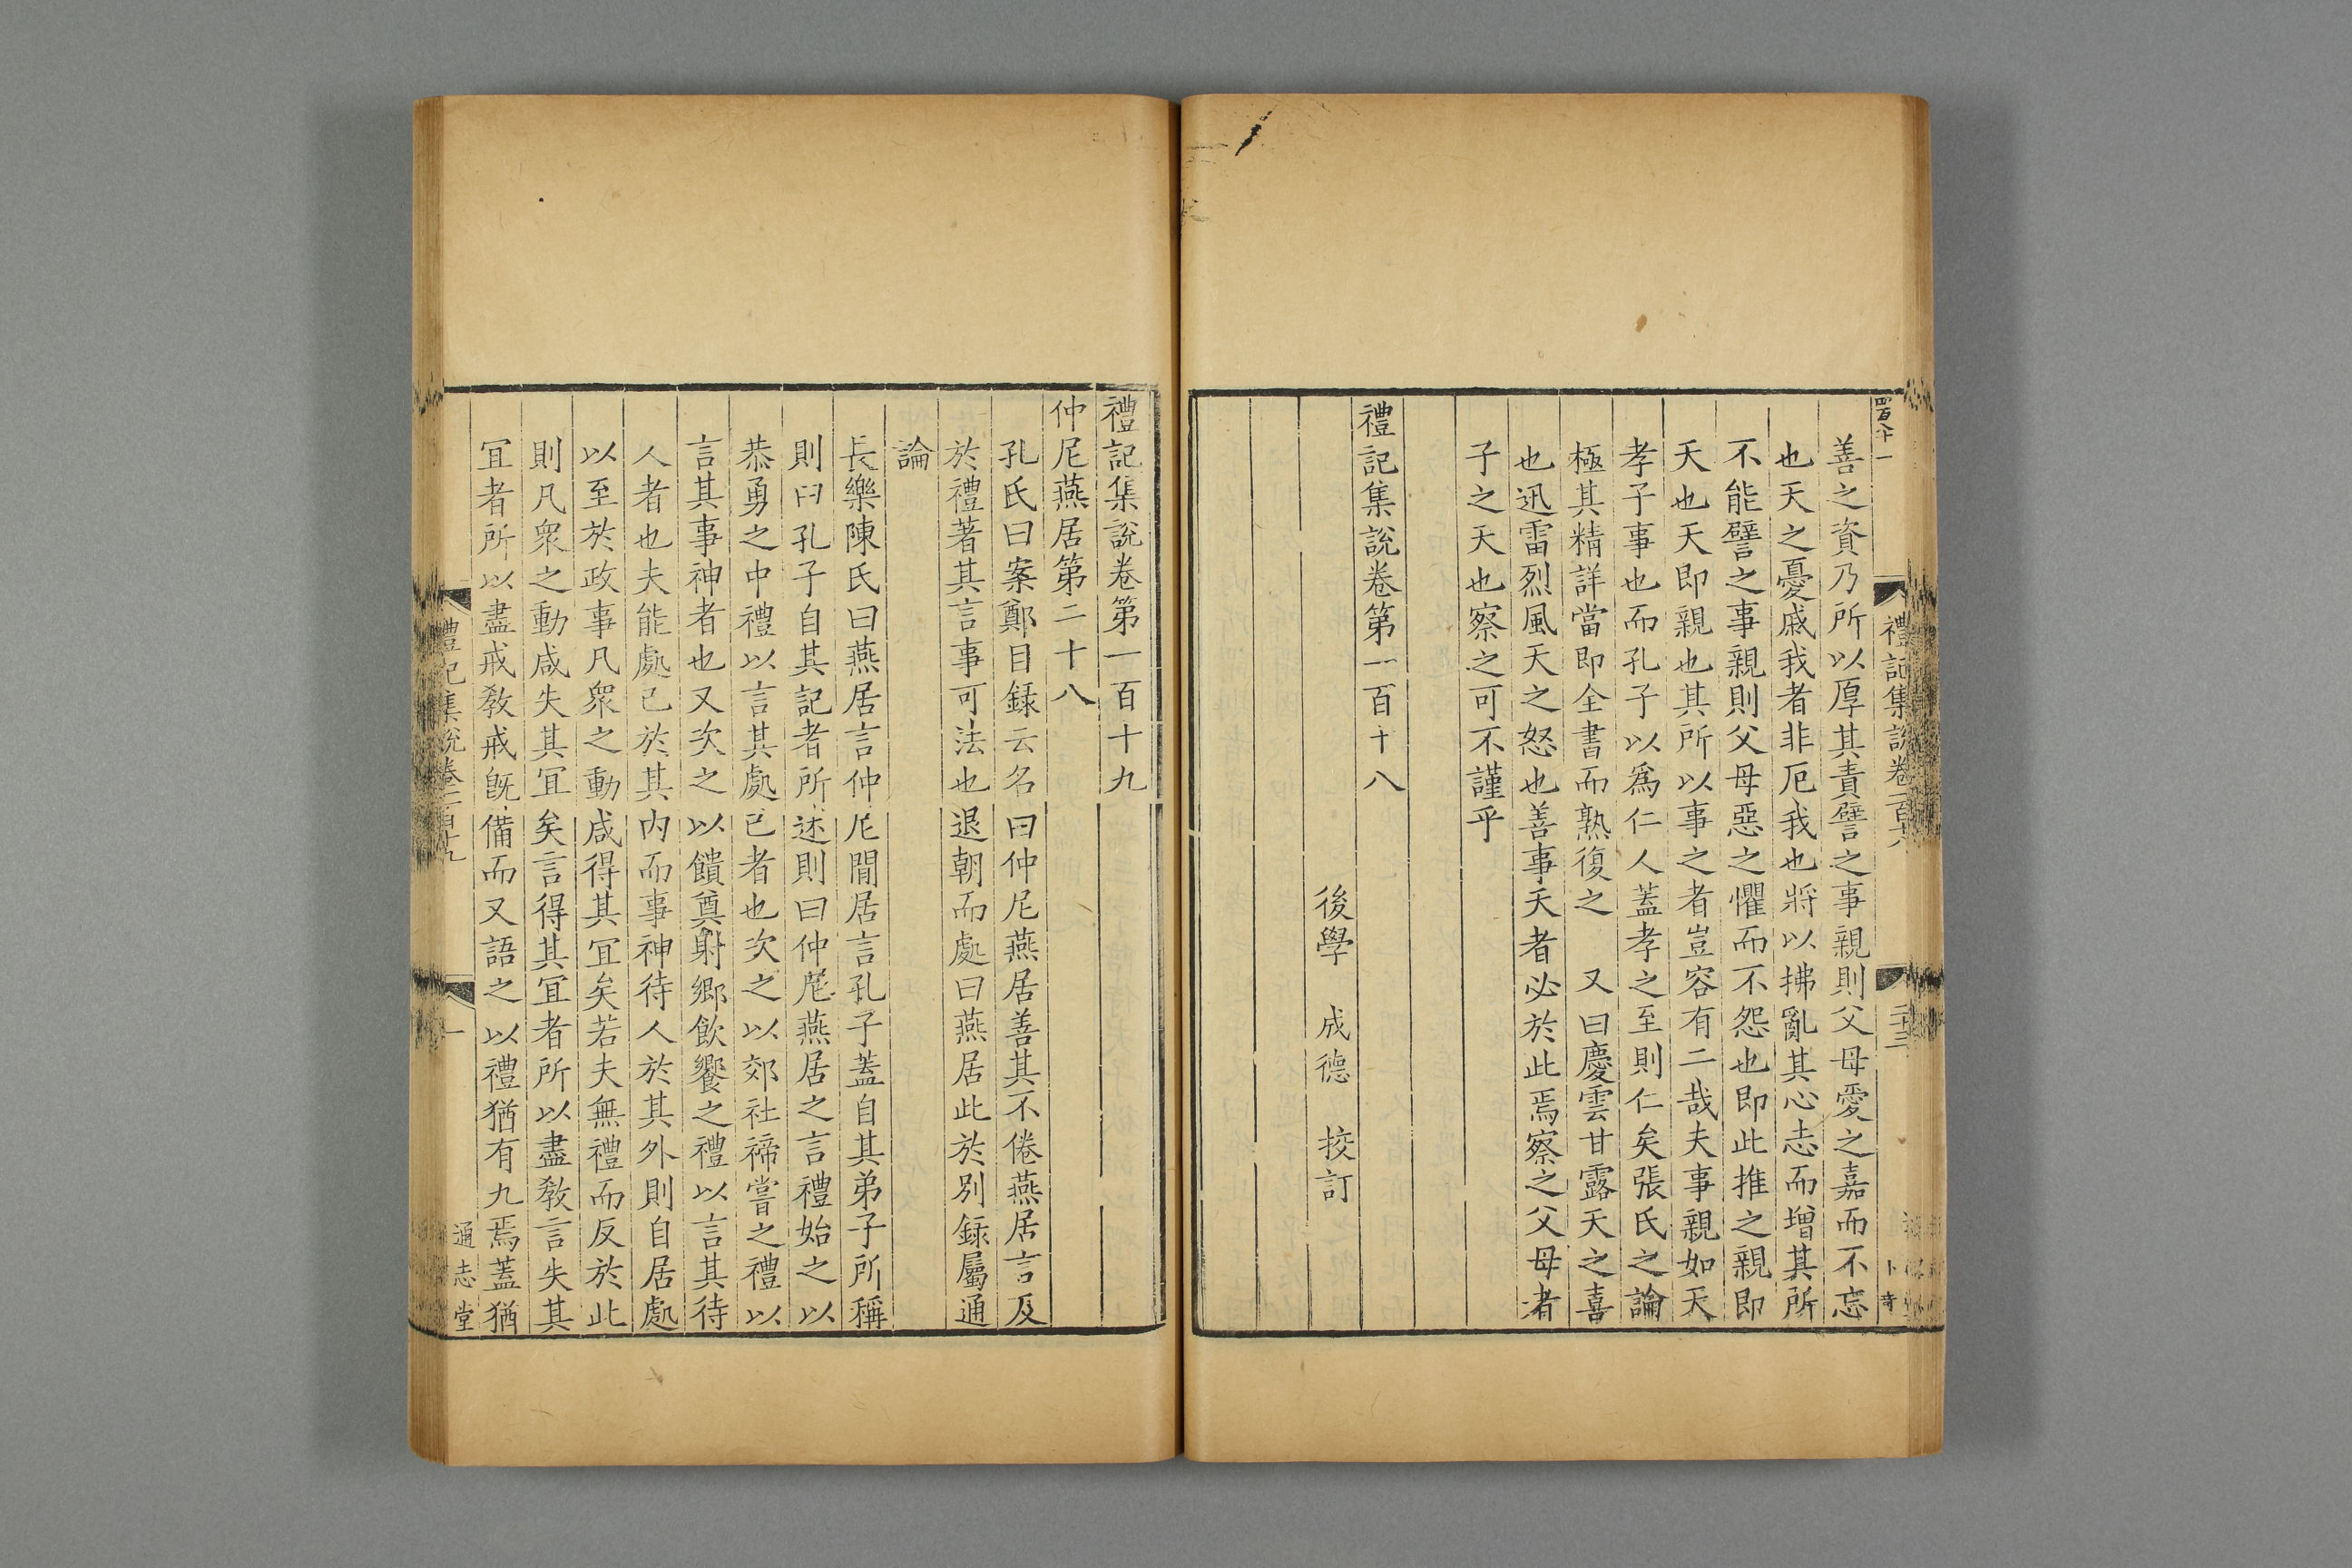 四百六十一
禮記集說卷一百十八
二十三
善之資乃所以厚其責譬之事親則父母愛之嘉而不忘
也天之憂戚我者非厄我也將以拂亂其心志而增其所
不能譬之事親則父母惡之懼而不怨也即此推之親即
天也天即親也其所以事之者豈容有二哉夫事親如天
孝子事也而孔子以為仁人蓋孝之至則仁矣張氏之論
極其精詳當即全書而熟復之　又曰慶雲甘露天之喜
也迅雷烈風天之怒也善事天者必於此焉察之父母者
子之天也察之可不謹乎
禮記集說卷第一百十八
後學　成德　挍訂
禮記集說卷第一百十九
仲尼燕居第二十八
孔氏曰案鄭目録云名曰仲尼燕居善其不倦燕居言及
於禮著其言事可法也退朝而處曰燕居此於別録屬通
論
長樂陳氏曰燕居言仲尼閒居言孔子蓋自其弟子所稱
則曰孔子自其記者所述則曰仲尼燕居之言禮始之以
恭勇之中禮以言其處已者也次之以郊社禘嘗之禮以
言其事神者也又次之以饋奠射鄉飲饗之禮以言其待
人者也夫能處已於其内而事神待人於其外則自居處
以至於政事凡衆之動咸得其冝矣若夫無禮而反於此
則凡衆之動咸失其冝矣言得其冝者所以盡教言失其
冝者所以盡戒教戒既備而又語之以禮猶有九焉蓋猶
禮記集說卷一百十九
一
通志堂